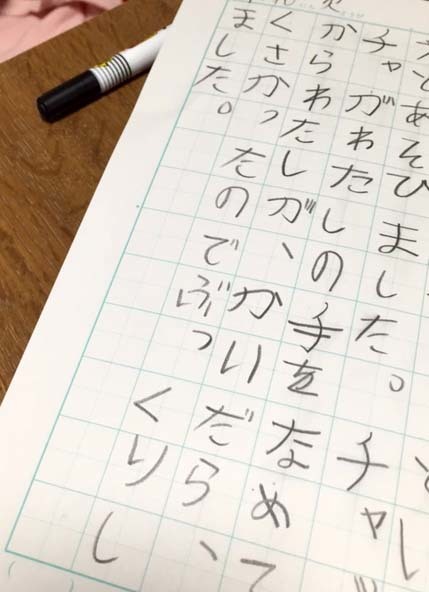 とあそびました。チャ
チャがわたしの手をなめて
からわたしが、かいだら、
くさかったのでぶっくりし
ました。